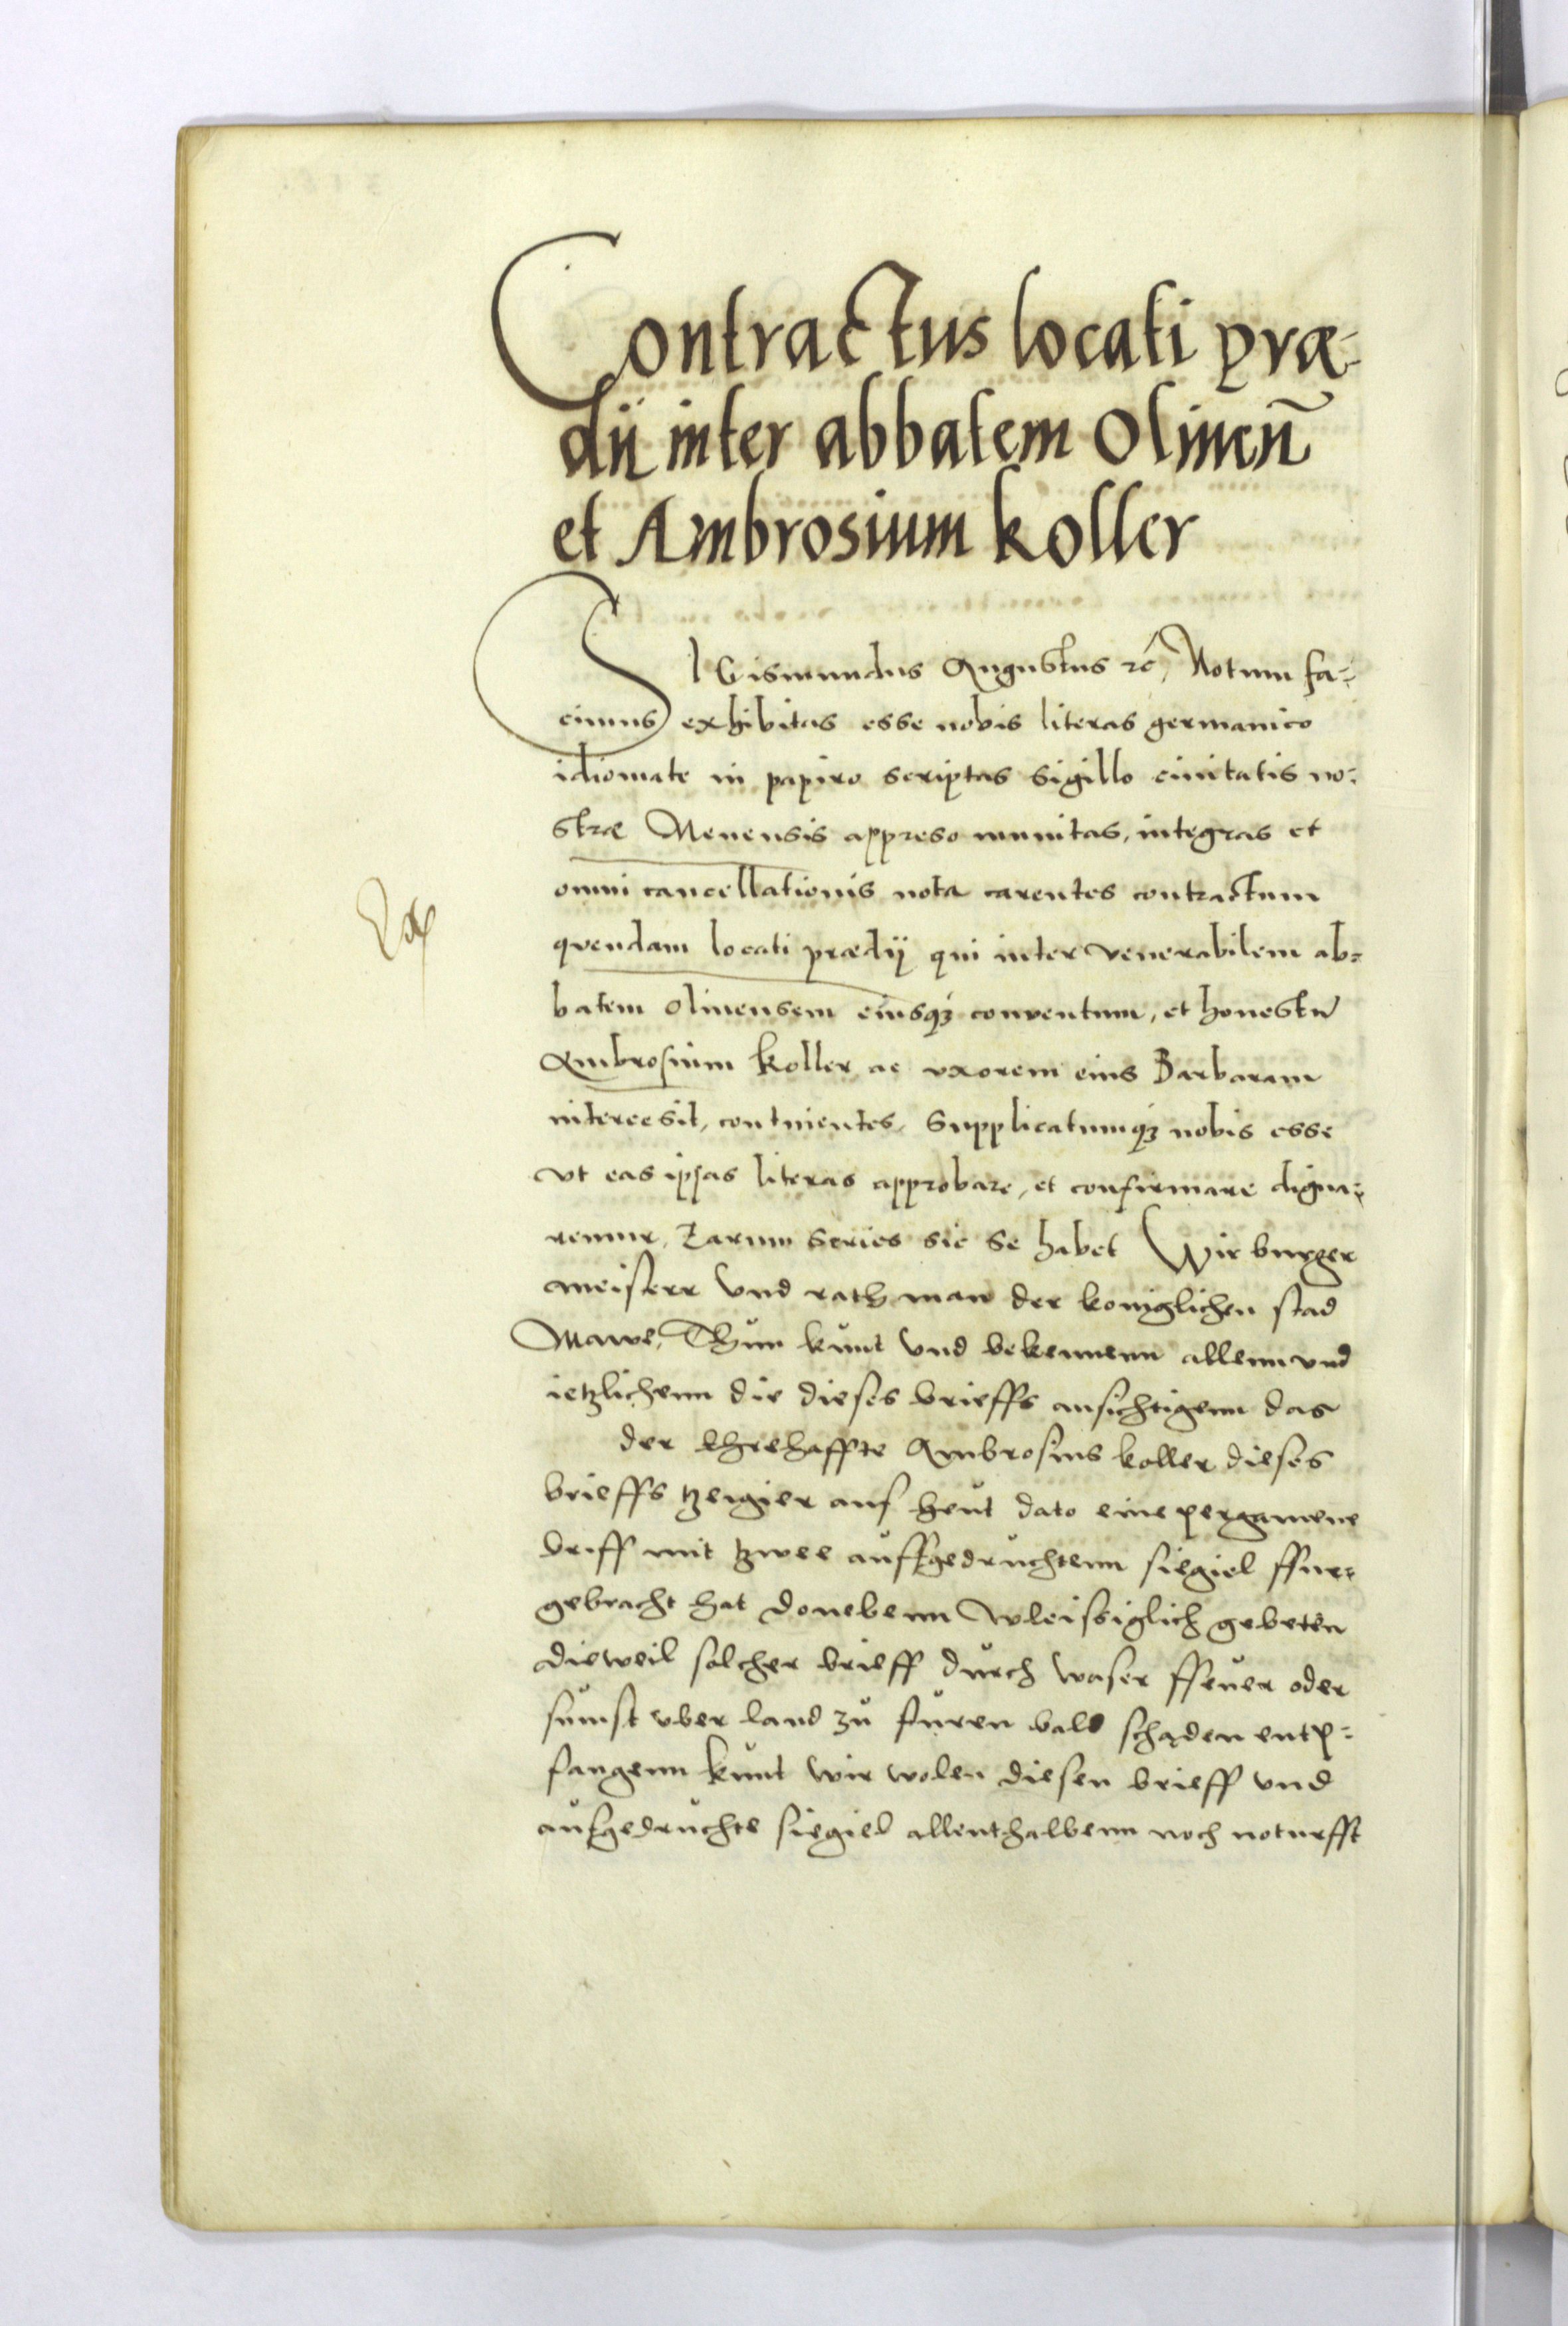 Contractus locati præ-
dii inter abbatem Oliuen̄
et Ambrosium Koller
SIGismundus Augustus rc̄, Notum fa-
cimus exhibitas esse nobis literas germanico
idiomate in papiro scriptas sigillo ciuitatis no-
stræ Meuensis appreso munitas, integras et
omni cancellationis nota carentes contractum
quendam locati prædij qui inter venerabilem ab-
batem Oliuensem eiusq3 conventum, et honestū
Ambrosium Koller ac vxorem eius Barbaram
intercesit, continentes, Supplicatumq3 nobis esse
vt eas ipsas literas approbare, et confirmare digna-
remur, Earum series sic se habet Wir burger
meisterr vnd rathman der koniglichen stad
Mawe, Thun kůnt vnd bekennenn allenn vnd
ietzlichenn die dieses brieffs ansichtigenn das
der Ehrehaffte Ambrosius koller dieses
brieffs tzeigier auf heůt dato eine pergamene
briff mit tzwee auffgedruchtenn siegiel ffur-
gebracht hat donebenn vleissiglich gebeten
dieweil solcher brieff důrch waser ffeůer oder
sůnst vber land zů fůren bald schaden entp-
fangenn kůnt wir wolen diesen brieff vnd
aufgedruchte siegiel allenthalbenn noch noturfft